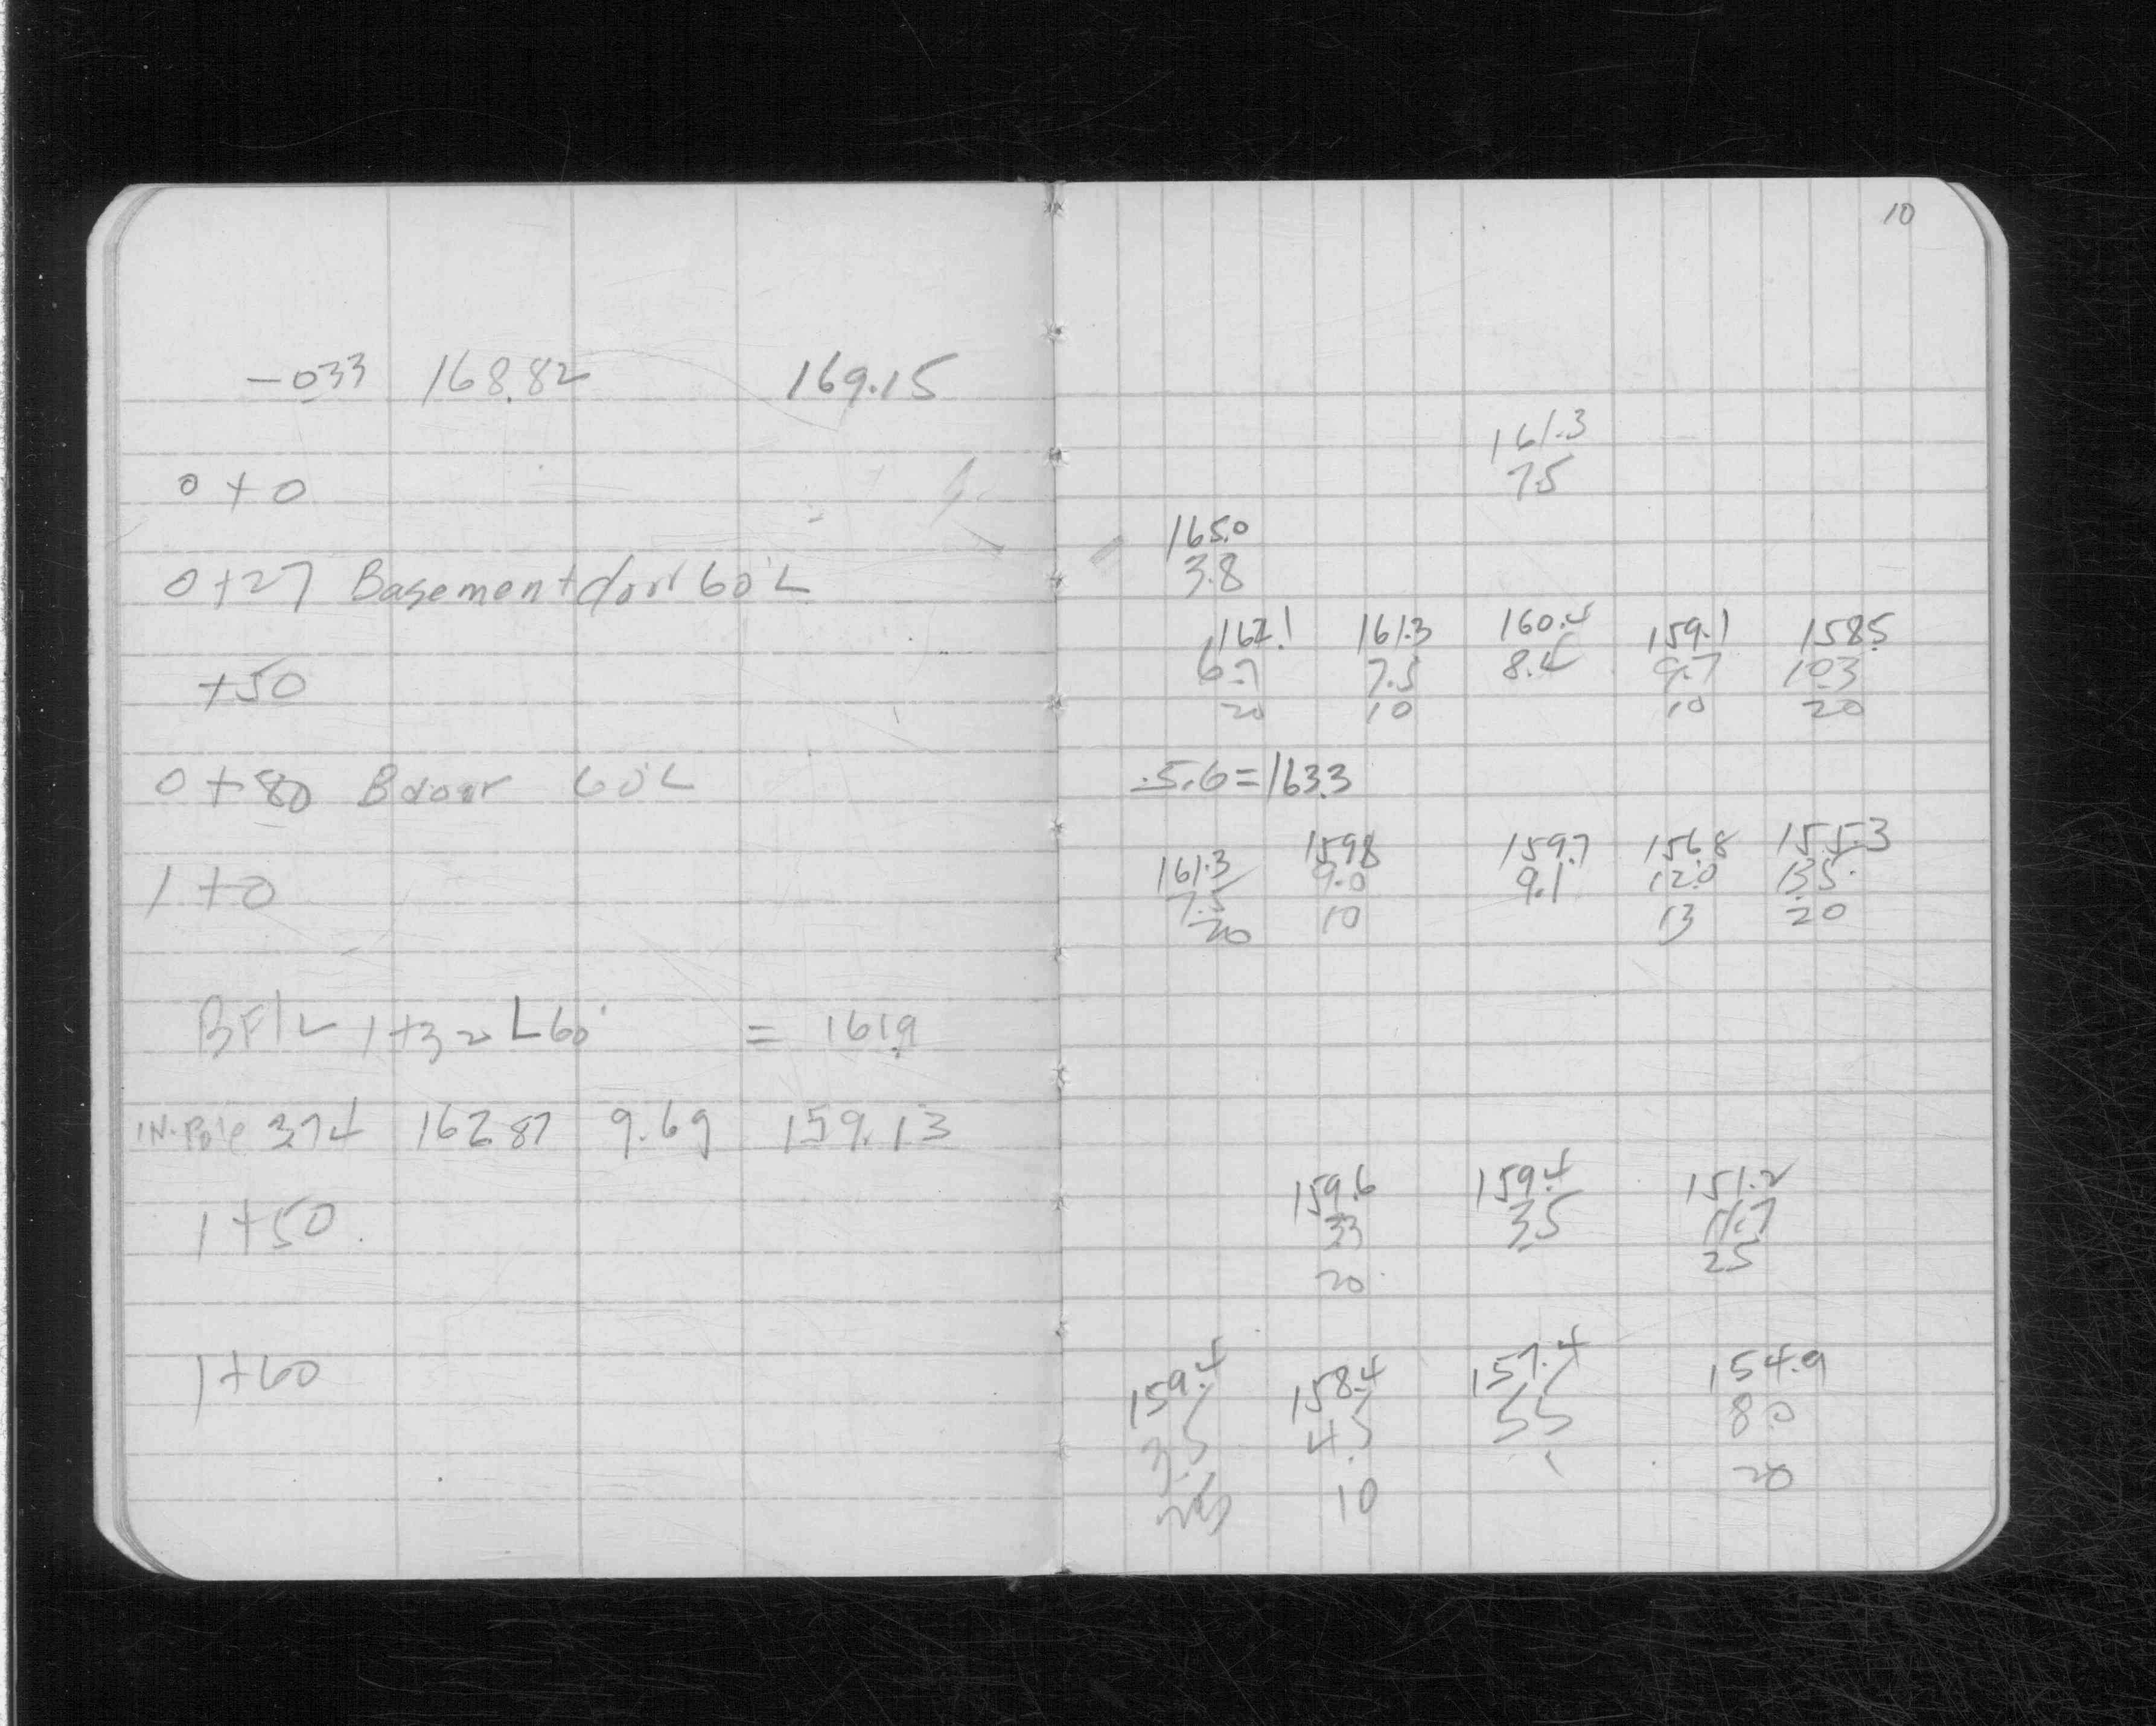 10
-033 168.82 169.15
0+0
0+27 Basement door 60'L
+50
0+80 Bdoor 60'L
1+0
BFlr 1+32 L60' = 161.9
IN.Pole 3.74 162.87 9.69 159.13
1+50
1+60
161.3
7.5
165.0
3.8
162.1 161.3 160.4 159.1 158.5
6.7 7.5 8.4 9.7 10.3
20 10 10 20
-5.6=163.3
161.3 159.8 159.7 156.8 155.3
7.5 9.0 9.1 12.0 13.5
20 10 13 20
159.6 159.4 151.2
33 3.5 11.7
20 25
159.4 158.4 157.4 154.9
3.5 4.5 5.5 8.0
10 20